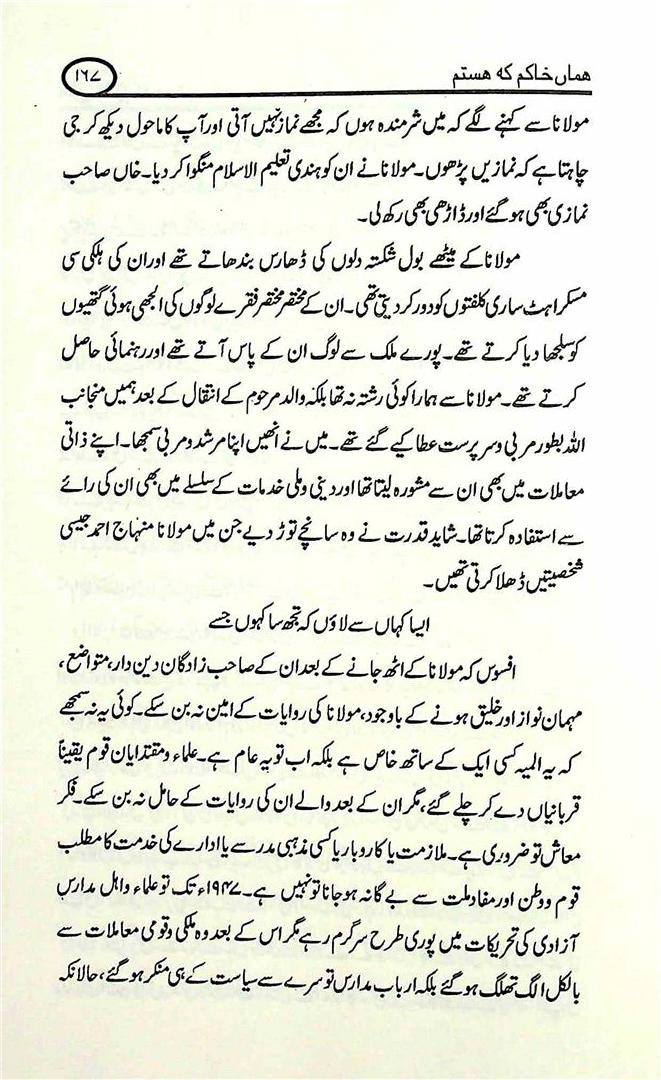 ہماں خاکم کہ ہستم
۱۶۷
مولانا سے کہنے لگے کہ میں شرمندہ ہوں کہ مجھے نماز نہیں آتی اور آپ کا ماحول دیکھ کر جی
چاہتا ہے کہ نمازیں پڑھوں۔ مولانا نے ان کو ہندی تعلیم الاسلام منگوا کر دیا۔ خاں صاحب
نمازی بھی ہو گئے اور ڈاڑھی بھی رکھ لی۔
مولانا کے میٹھے بول شکستہ دلوں کی ڈھارس بندھاتے تھے اور ان کی ہلکی سی
مسکراہٹ ساری کلفتوں کو دور کر دیتی تھی۔ ان کے مختصر مختصر فقرے لوگوں کی الجھی ہوئی گتھیوں
کو سلجھا دیا کرتے تھے۔ پورے ملک سے لوگ ان کے پاس آتے تھے اور رہنمائی حاصل
کرتے تھے۔ مولانا سے ہمارا کوئی رشتہ نہ تھا بلکہ والد مرحوم کے انتقال کے بعد ہمیں منجانب
اللہ بطور مربی و سرپرست عطا کیے گئے تھے۔ میں نے انھیں اپنا مرشد و مربی سمجھا۔ اپنے ذاتی
معاملات میں بھی ان سے مشورہ لیتا تھا اور دینی و ملی خدمات کے سلسلے میں بھی ان کی رائے
سے استفادہ کرتا تھا۔ شاید قدرت نے وہ سانچے توڑ دیے جن میں مولانا منہاج احمد جیسی
شخصیتیں ڈھلا کرتی تھیں۔
ایسا کہاں سے لاؤں کہ تجھ سا کہوں جسے
افسوس کہ مولانا کے اٹھ جانے کے بعد ان کے صاحب زادگان دین دار، متواضع،
مہمان نواز اور خلیق ہونے کے باوجود، مولانا کی روایات کے امین نہ بن سکے۔ کوئی یہ نہ سمجھے
کہ یہ المیہ کسی ایک کے ساتھ خاص ہے بلکہ اب تو یہ عام ہے۔ علماء و مقتدایان قوم یقیناً
قربانیاں دے کر چلے گئے، مگر ان کے بعد والے ان کی روایات کے حامل نہ بن سکے۔ فکر
معاش تو ضروری ہے۔ ملازمت یا کاروبار یا کسی مذہبی مدرسے یا ادارے کی خدمت کا مطلب
قوم و وطن اور مفاد ملت سے بے گانہ ہو جانا تو نہیں ہے۔ ۱۹۴۷ء تک تو علماء و اہل مدارس
آزادی کی تحریکات میں پوری طرح سرگرم رہے مگر اس کے بعد وہ ملکی و قومی معاملات سے
بالکل الگ تھلگ ہو گئے بلکہ ارباب مدارس تو سرے سے سیاست کے ہی منکر ہو گئے، حالانکہ